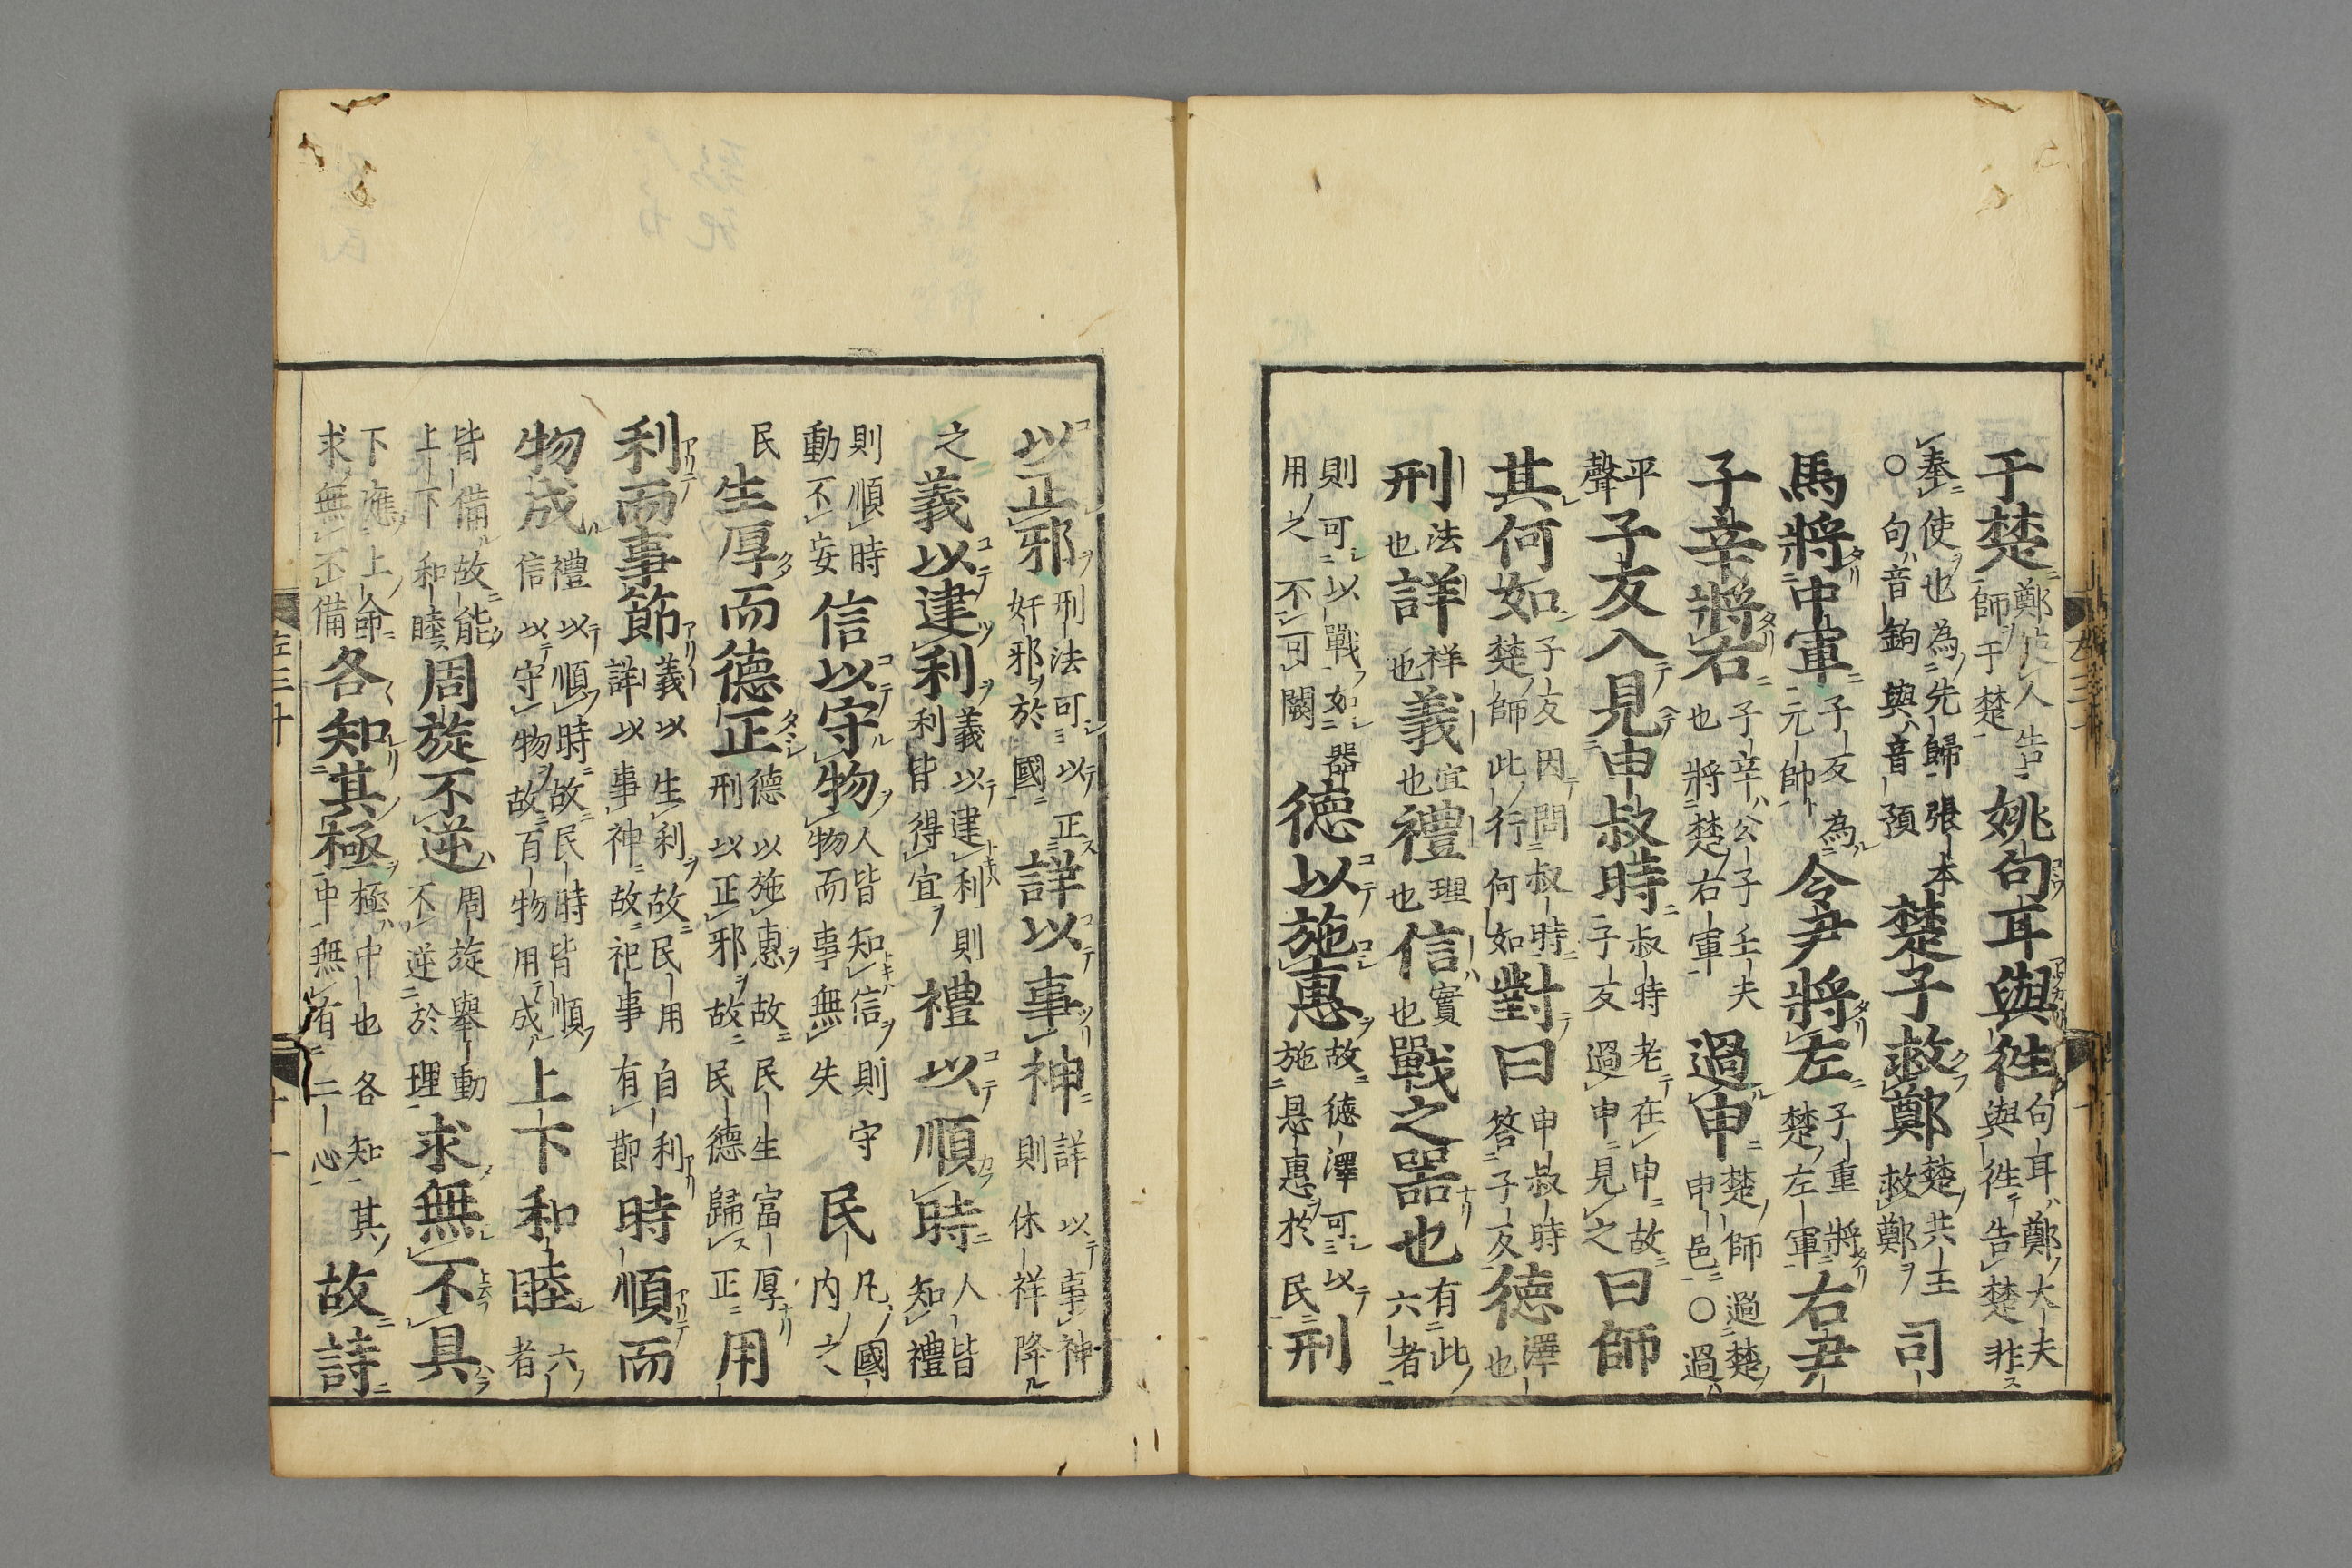 于楚鄭遣人告師于楚姚句耳與徃句耳鄭大夫與徃告楚非
奉使也為先歸張本○句音鉤與音預楚子救鄭楚共王救鄭司
馬將中軍子反為元帥令尹將左子重將楚左軍右尹
子辛將右子辛公子壬夫也將楚右軍過申楚師過楚申邑○過
平聲子反入見申叔時叔時老在申故子反過申見之曰師
其何如子反因問叔時楚師此行何如對曰申叔時答子反德澤也
刑法也詳祥也義宜也禮理也信實也戰之器也有此六者
則可以戰如器用之不可闕德以施惠故德澤可以施恩惠於民刑
以正邪刑法可以正奸邪於國詳以事神詳以事神則休祥降
之義以建利義以建利則利皆得宜禮以順時人皆知禮
則順時動不妄信以守物人皆知信則守物而事無失民凡國内之
民生厚而德正德以施惠故民生富厚刑以正邪故民德歸正用
利而事節義以生利故民用自利詳以事神故祀事有節時順而
物成禮以順時故民時皆順信以守物故百物用成上下和睦六者
皆備故能上下和睦周旋不逆周旋舉動不逆於理求無不具
下應上命求無不備各知其極極中也各知其中無有二心故詩
左三十